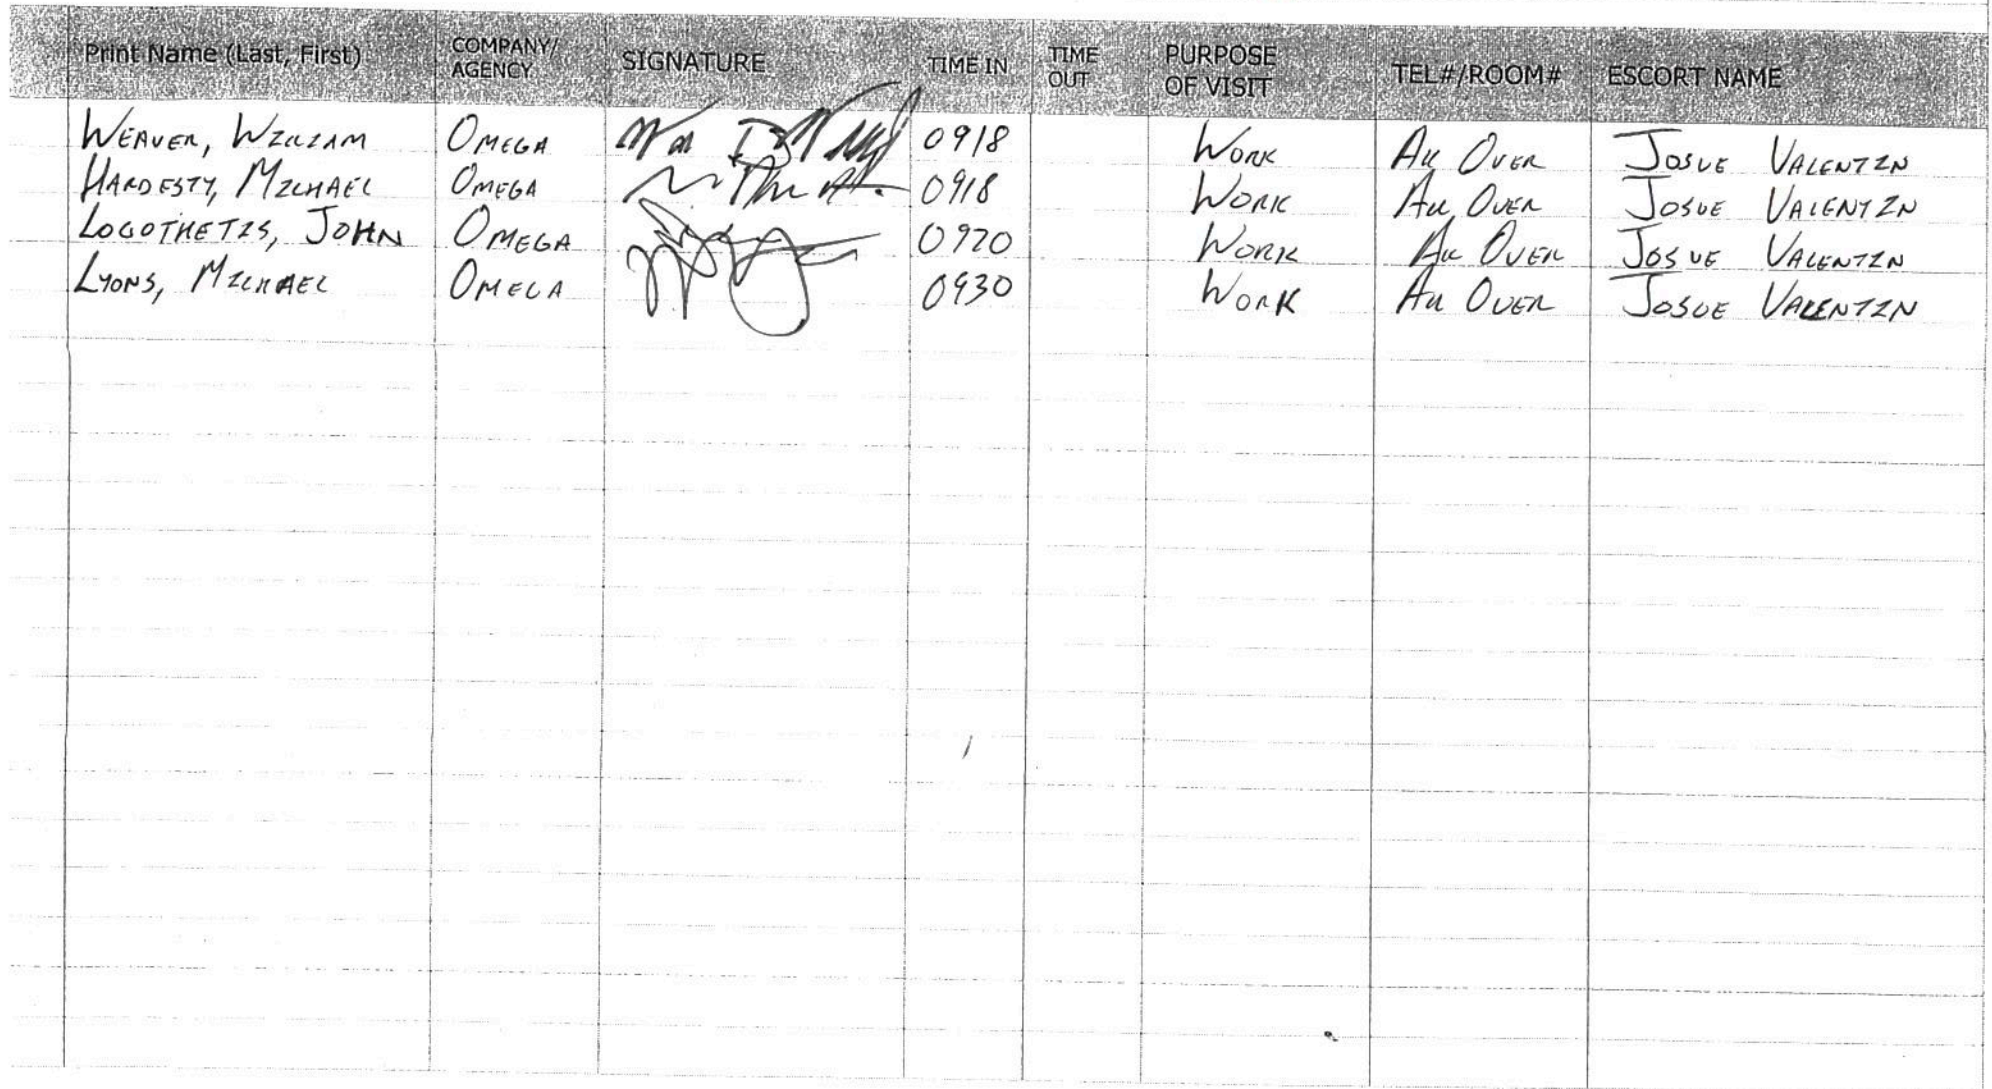 Print Name (Last, First) COMPANY/ AGENCY SIGNATURE TIME IN TIME OUT PURPOSE OF VISIT TEL#/ROOM# ESCORT NAME
WEAVER, WILLIAM OMEGA 0918 WORK ALL OVER JOSUE VALENTIN
HARDESTY, MICHAEL OMEGA 0918 WORK ALL OVER JOSUE VALENTIN
LOGOTHETIS, JOHN OMEGA 0920 WORK ALL OVER JOSUE VALENTIN
LYONS, MICHAEL OMEGA 0930 WORK ALL OVER JOSUE VALENTIN